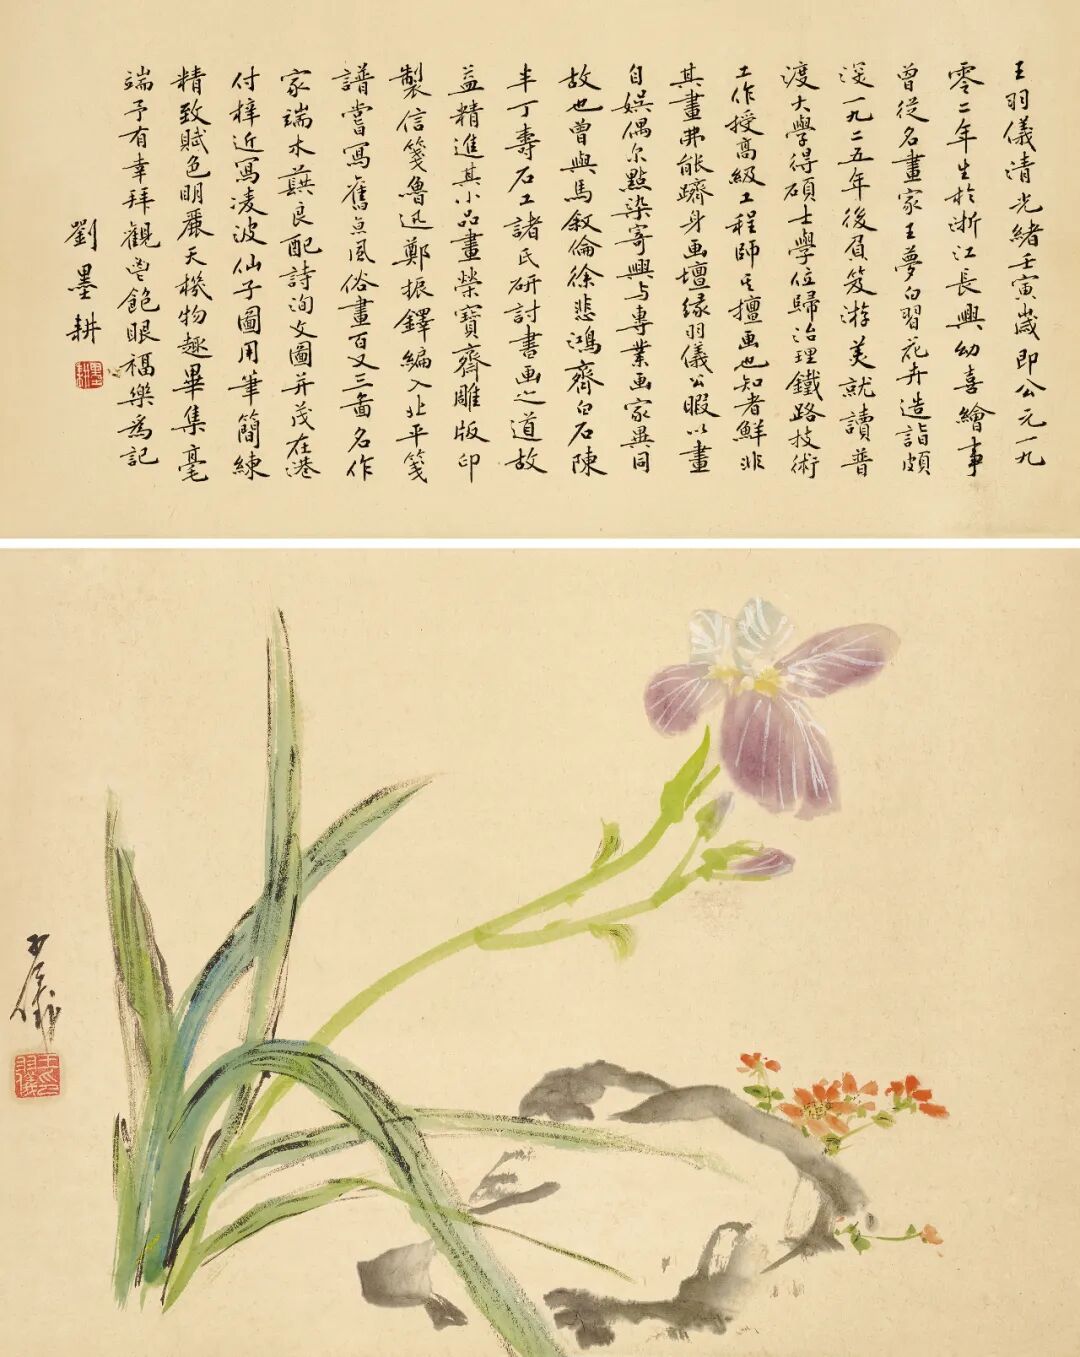 王羽儀清光緒壬寅歲即公元一九
零二年生於浙江長興幼喜繪事
曾從名畫家王夢白習花卉造詣頗
深一九二五年後負笈游美就讀普
渡大學得碩士學位歸治理鐵路技術
工作授高級工程師其擅画也知者鮮非
其畫弗能躋身画壇緣羽儀公暇以畫
自娛偶尔點染寄興与專業画家異同
故也曾與馬叙倫徐悲鴻齊白石陳
半丁壽石工諸氏研討書画之道故
益精進其小品畫榮寶齋雕版印
製信箋魯迅鄭振鐸編入北平箋
譜嘗寫舊京風俗畫百又三啚名作
家端木蕻良配詩洵文圖并茂在港
付梓近寫凌波仙子圖用筆簡練
精致賦色明麗天機物趣畢集毫
端予有幸拜觀啚飽眼福樂為記
劉墨耕
墨耕
羽儀
王羽儀